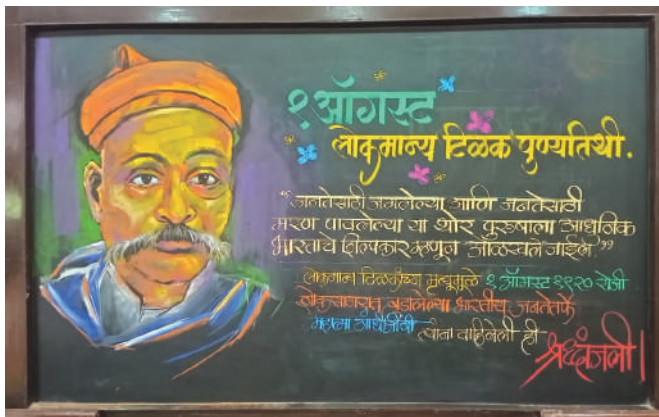 १ ऑगस्ट
लोकमान्य टिळक पुण्यतिथी.
"जनतेसाठी जगलेल्या आणि जनतेसाठी
मरण पावलेल्या या थोर पुरुषाला आधुनिक
भारताचे शिल्पकार म्हणून ओळखले जाईल"
लोकमान्य टिळकांच्या मृत्यूमुळे १ ऑगस्ट १९२० रोजी
लोकसागरात बुडालेल्या भारतीय जनतेतर्फे
महात्मा गांधीजींनी त्यांना वाहिलेली ही
श्रद्धांजली।